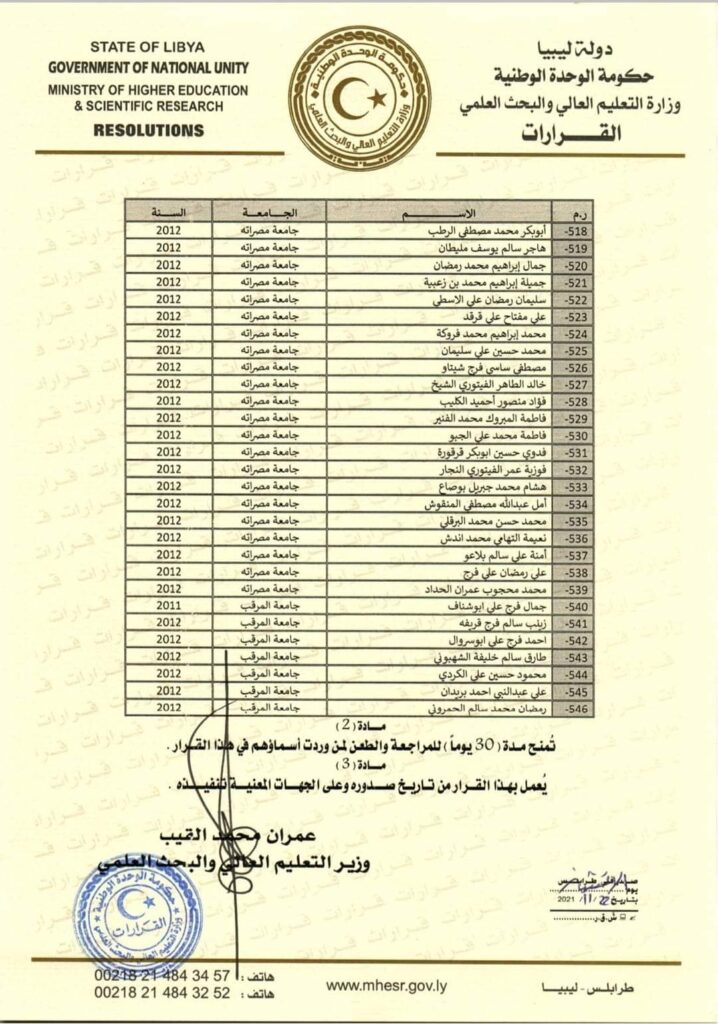 STATE OF LIBYA
GOVERNMENT OF NATIONAL UNITY
MINISTRY OF HIGHER EDUCATION
& SCIENTIFIC RESEARCH
RESOLUTIONS
دولة ليبيا
حكومة الوحدة الوطنية
وزارة التعليم العالي والبحث العلمي
القـــرارات
حكومة الوحدة الوطنية
وزارة التعليم العالي والبحث العلمي
ر.م الاســـم الجـامعـة السـنة
518- أبوبكر محمد مصطفي الرطب جامعة مصراته 2012
519- هاجر سالم يوسف مليطان جامعة مصراته 2012
520- جمال إبراهيم محمد رمضان جامعة مصراته 2012
521- جميلة إبراهيم محمد بن زعبية جامعة مصراته 2012
522- سليمان رمضان علي الاسطي جامعة مصراته 2012
523- علي مفتاح علي قرقد جامعة مصراته 2012
524- محمد إبراهيم محمد فروكة جامعة مصراته 2012
525- محمد حسين علي سليمان جامعة مصراته 2012
526- مصطفى ساسي فرج شيتاو جامعة مصراته 2012
527- خالد الطاهر الفيتوري الشيخ جامعة مصراته 2012
528- فؤاد منصور أحميد الكليب جامعة مصراته 2012
529- فاطمة المبروك محمد الفنير جامعة مصراته 2012
530- فاطمة محمد علي الجبو جامعة مصراته 2012
531- فدوي حسين ابوبكر قرقورة جامعة مصراته 2012
532- فوزية عمر الفيتوري النجار جامعة مصراته 2012
533- هشام محمد جبريل بوصاع جامعة مصراته 2012
534- أمل عبدالله مصطفي المنقوش جامعة مصراته 2012
535- محمد حسن محمد البرقلي جامعة مصراته 2012
536- نعيمة التهامي محمد اندش جامعة مصراته 2012
537- آمنة علي سالم بلاعو جامعة مصراته 2012
538- علي رمضان علي فرج جامعة مصراته 2012
539- محمد محجوب عمران الحداد جامعة مصراته 2012
540- جمال فرج علي ابوشناف جامعة المرقب 2011
541- زينب سالم فرج قريفه جامعة المرقب 2012
542- احمد فرج علي ابوسروال جامعة المرقب 2012
543- طارق سالم خليفة الشهبوني جامعة المرقب 2012
544- محمود حسين علي الكردي جامعة المرقب 2012
545- علي عبدالنبي احمد بريدان جامعة المرقب 2012
546- رمضان محمد سالم الحمروني جامعة المرقب 2012
مـادة (2)
تُمنح مدة (30 يوماً) للمراجعة والطعن لمن وردت أسماؤهم في هذا القرار .
مـادة (3)
يُعمل بهذا القرار من تاريخ صدوره وعلى الجهات المعنية تنفيذه .
عمران محمد القيب
وزير التعليم العالي والبحث العلمي
حكومة الوحدة الوطنية
القـرارات
بتاريخ 22/11/2021
هاتف : 00218 21 484 34 57
هاتف : 00218 21 484 32 52
www.mhesr.gov.ly
طرابلس - ليبيـا